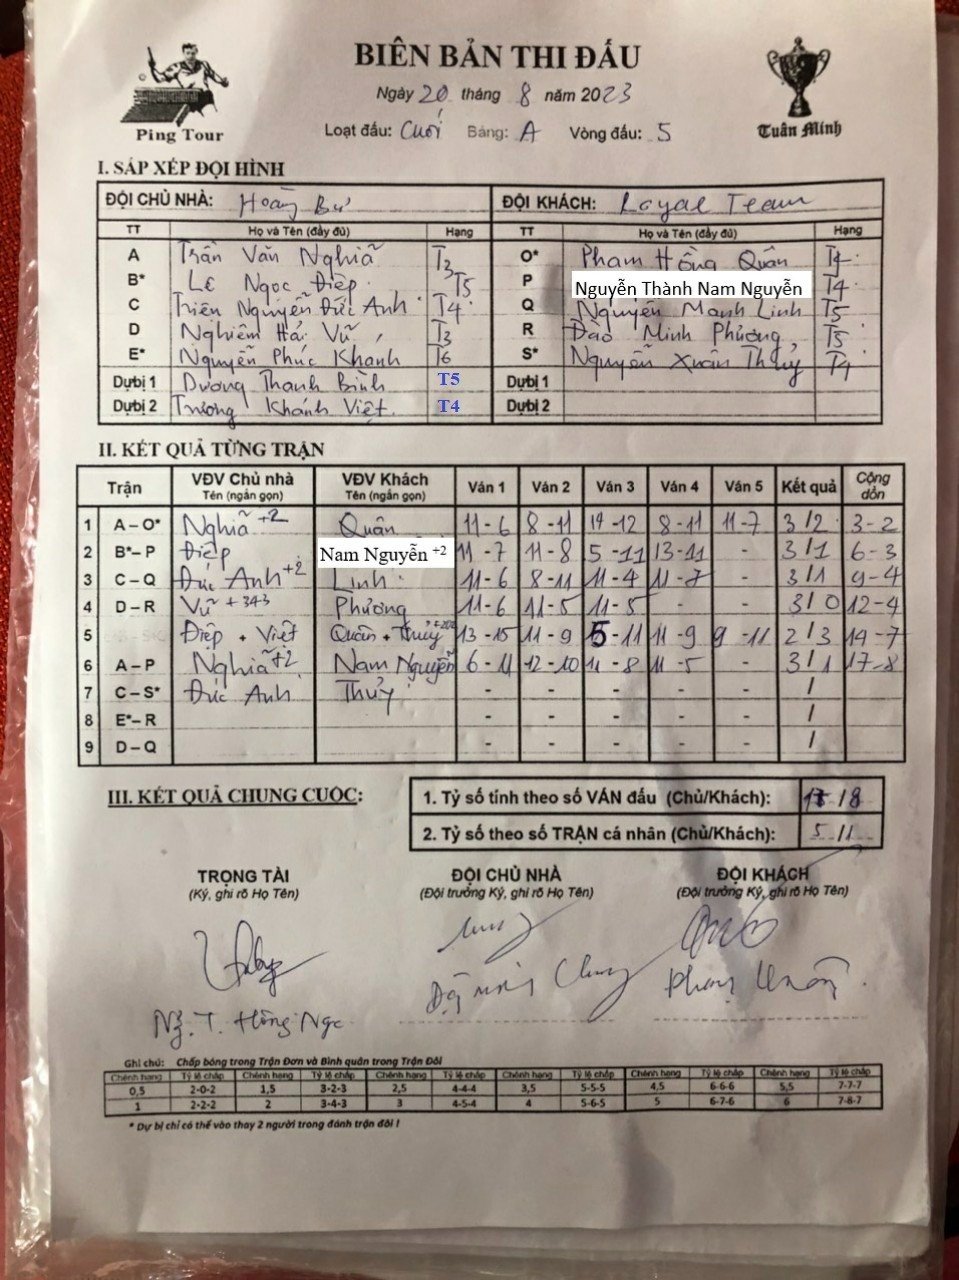 BIÊN BẢN THI ĐẤU
Ngày 20 tháng 8 năm 2023
Ping Tour
Loạt đấu: Cuối Bảng: A Vòng đấu: 5
Tuân Minh
I. SẮP XẾP ĐỘI HÌNH
ĐỘI CHỦ NHÀ: Hoàng Bư ĐỘI KHÁCH: Loyal Team
TT Họ và Tên (đầy đủ) Hạng TT Họ và Tên (đầy đủ) Hạng
A Trần Văn Nghĩa T3 O* Phạm Hồng Quân T4
B* Lê Ngọc Điệp T5 P Nguyễn Thành Nam Nguyễn T4
C Triên Nguyễn Đức Anh T4 Q Nguyễn Mạnh Linh T5
D Nghiêm Hải Vũ T3 R Đào Minh Phương T5
E* Nguyễn Phúc Khanh T6 S* Nguyễn Xuân Thủy T4
Dựbị 1 Dương Thanh Bình T5 Dựbị 1
Dựbị 2 Trương Khánh Việt T4 Dựbị 2
II. KẾT QUẢ TỪNG TRẬN
Trận VĐV Chủ nhà Tên (ngắn gọn) VĐV Khách Tên (ngắn gọn) Ván 1 Ván 2 Ván 3 Ván 4 Ván 5 Kết quả Cộng dồn
1 A – O* Nghĩa +2 Quân 11 - 6 8 - 11 14 - 12 8 - 11 11 - 7 3 / 2 3 - 2
2 B* – P Điệp Nam Nguyễn +2 11 - 7 11 - 8 5 - 11 13 - 11 - 3 / 1 6 - 3
3 C – Q Đức Anh +2 Linh 11 - 6 8 - 11 11 - 4 11 - 7 - 3 / 1 9 - 4
4 D – R Vũ +343 Phương 11 - 6 11 - 5 11 - 5 - - 3 / 0 12 - 4
5 Điệp + Việt Quân + Thủy +202 13 - 15 11 - 9 5 - 11 11 - 9 9 - 11 2 / 3 14 - 7
6 A – P Nghĩa +2 Nam Nguyễn 6 - 11 12 - 10 11 - 8 11 - 5 - 3 / 1 17 - 8
7 C – S* Đức Anh Thủy - - - - - /
8 E* – R - - - - - /
9 D – Q - - - - - /
III. KẾT QUẢ CHUNG CUỘC:
1. Tỷ số tính theo số VÁN đấu (Chủ/Khách): 17 / 8
2. Tỷ số theo số TRẬN cá nhân (Chủ/Khách): 5 / 1
TRỌNG TÀI ĐỘI CHỦ NHÀ ĐỘI KHÁCH
(Ký, ghi rõ Họ Tên) (Đội trưởng Ký, ghi rõ Họ Tên) (Đội trưởng Ký, ghi rõ Họ Tên)
Ng. T. Hồng Ngc
Ghi chú: Chấp bóng trong Trận Đơn và Bình quân trong Trận Đôi
Chênh hạng Tỷ lệ chấp Chênh hạng Tỷ lệ chấp Chênh hạng Tỷ lệ chấp Chênh hạng Tỷ lệ chấp Chênh hạng Tỷ lệ chấp Chênh hạng Tỷ lệ chấp
0,5 2-0-2 1,5 3-2-3 2,5 4-4-4 3,5 5-5-5 4,5 6-6-6 5,5 7-7-7
1 2-2-2 2 3-4-3 3 4-5-4 4 5-6-5 5 6-7-6 6 7-8-7
* Dự bị chỉ có thể vào thay 2 người trong đánh trận đôi !